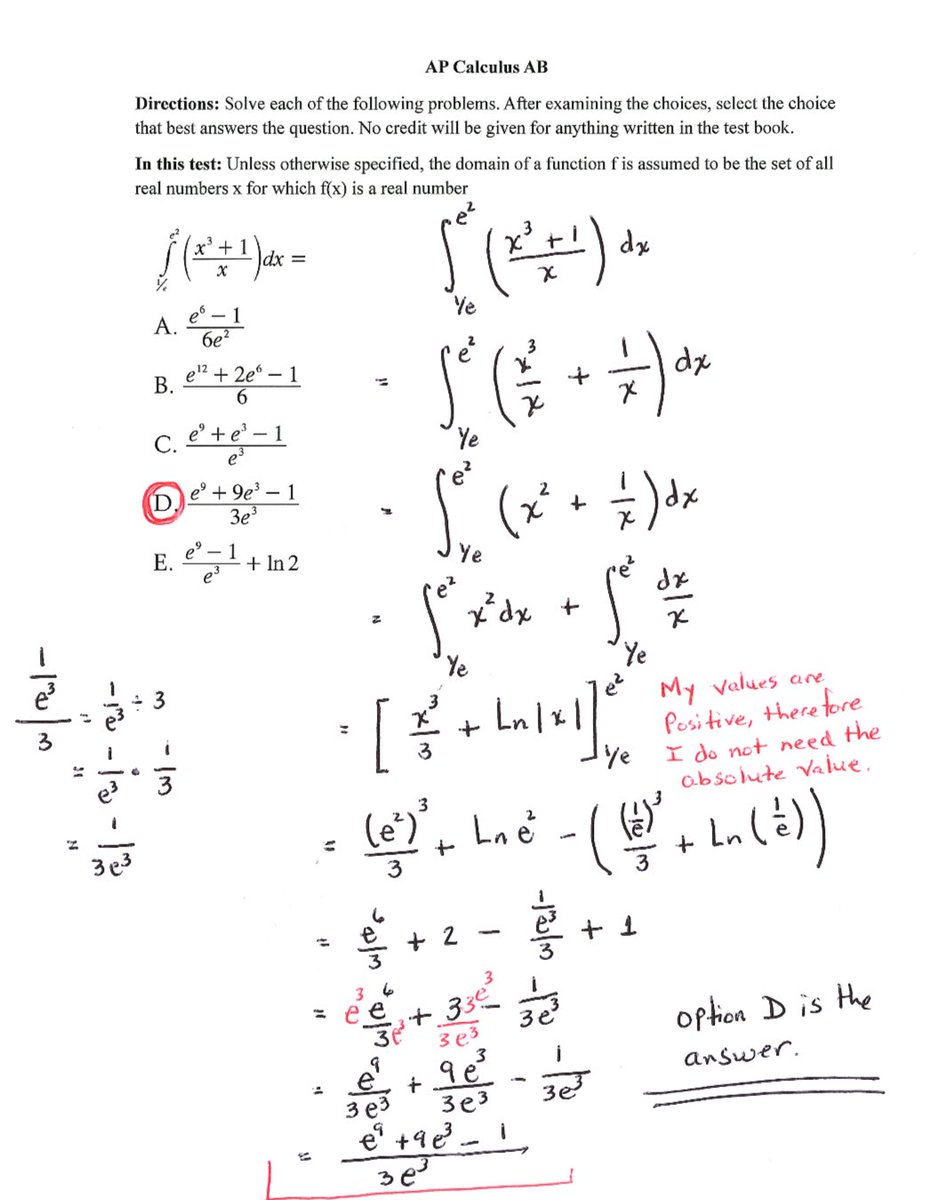 AP Calculus AB
Directions: Solve each of the following problems. After examining the choices, select the choice
that best answers the question. No credit will be given for anything written in the test book.
In this test: Unless otherwise specified, the domain of a function f is assumed to be the set of all
real numbers x for which f(x) is a real number
∫_{1/e}^{e²} ((x³ + 1)/x) dx =
A. (e⁶ − 1)/(6e²)
B. (e¹² + 2e⁶ − 1)/6
C. (e⁹ + e³ − 1)/e³
D. (e⁹ + 9e³ − 1)/(3e³)
E. (e⁹ − 1)/e³ + ln 2
∫_{1/e}^{e²} ((x³ + 1)/x) dx
= ∫_{1/e}^{e²} (x³/x + 1/x) dx
= ∫_{1/e}^{e²} (x² + 1/x) dx
= ∫_{1/e}^{e²} x² dx + ∫_{1/e}^{e²} dx/x
= [x³/3 + Ln|x|]_{1/e}^{e²}
My values are
Positive, therefore
I do not need the
absolute value.
= (e²)³/3 + Ln e² − ((1/e)³/3 + Ln(1/e))
= e⁶/3 + 2 − (1/e³)/3 + 1
= e³e⁶/3e³ + 3·3e³/3e³ − 1/3e³
= e⁹/3e³ + 9e³/3e³ − 1/3e³
= (e⁹ + 9e³ − 1)/3e³
(1/e³)/3 = 1/e³ ÷ 3
= 1/e³ · 1/3
= 1/3e³
option D is the
answer.